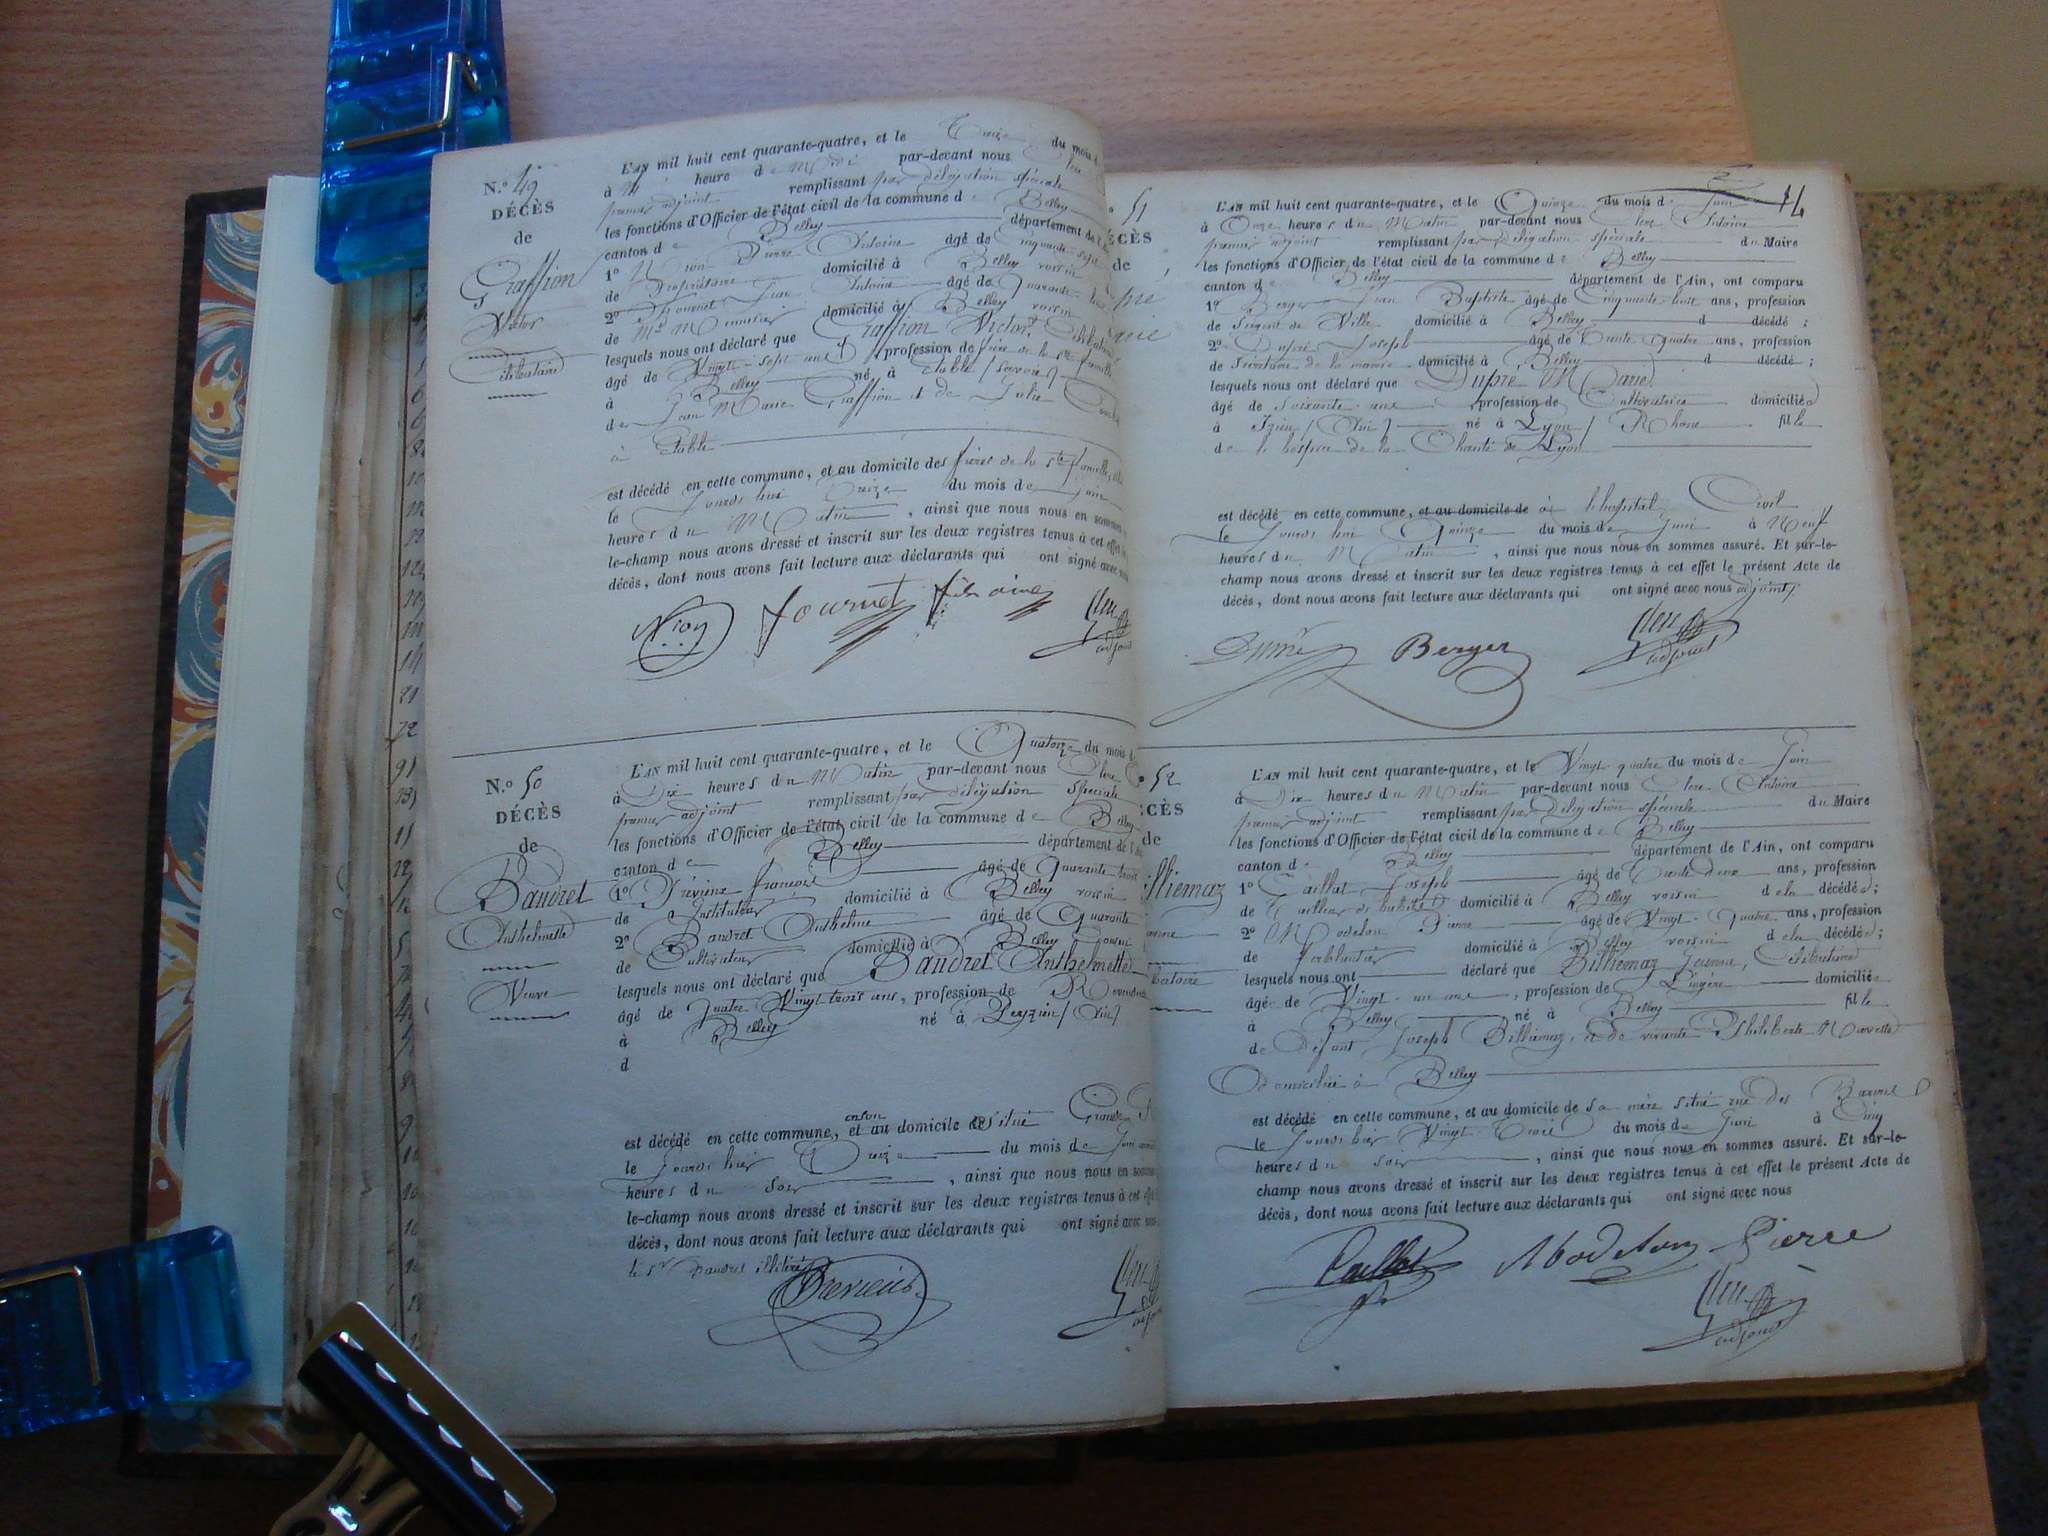 N.° 49
DÉCÈS
de
Graffion
Victor
Célibataire
L'AN mil huit cent quarante-quatre, et le Treize du mois d
à heure d e Midi par-devant nous Clerc
premier adjoint remplissant par délégation spéciale
les fonctions d'Officier de l'état civil de la commune d e Belley
canton d e Belley département de l'
1° Nion Pierre Antoine âgé de Cinquante sept
de Propriétaire domicilié à Belley voisin
2° Fournet Jean Antoine âgé de Quarante
de Md Menuisier domicilié à Belley voisin
lesquels nous ont déclaré que Graffion Victor, Célibataire
âgé de Vingt-sept ans profession de frère de la Ste famille
à Belley né à Etable (Savoie)
de Jean Marie Graffion et de Julie
à Etable
est décédé en cette commune, et au domicile des frères de la Ste famille,
le Jourd'hui Treize du mois de Juin
heures du Matin, ainsi que nous nous en sommes
le-champ nous avons dressé et inscrit sur les deux registres tenus à cet effet
décès, dont nous avons fait lecture aux déclarants qui ont signé avec nous
Nion Fournet Antoine Clerc
adjoint
N.° 50
DÉCÈS
de
Baudret
Anthelmette
Veuve
L'AN mil huit cent quarante-quatre, et le Quatorze du mois d
à Dix heures du Matin par-devant nous Clerc
premier adjoint remplissant par délégation spéciale
les fonctions d'Officier de l'état civil de la commune d e Belley
canton d e Belley département de l'
1° Prévieux François âgé de Quarante trois
de Instituteur domicilié à Belley voisin
2° Baudret Anthelme âgé de Quarante
de Cultivateur domicilié à Belley Cousin
lesquels nous ont déclaré que Baudret Anthelmette
âgé de Quatre Vingt trois ans, profession de
à Belley né à Peyzieu (Ain)
d
est décédé en cette commune, et au domicile situé Grande
le Jourd'hier Treize du mois de Juin
heures du Soir, ainsi que nous nous en sommes
le-champ nous avons dressé et inscrit sur les deux registres tenus à cet effet
décès, dont nous avons fait lecture aux déclarants qui ont signé avec nous
le Sr Baudret illitéré
Clerc
adjoint
° 51
ÉCÈS
de
pré
arie
L'AN mil huit cent quarante-quatre, et le Quinze du mois de Juin
à Onze heures du Matin par-devant nous Clerc Antoine
premier adjoint remplissant par délégation spéciale du Maire
les fonctions d'Officier de l'état civil de la commune d e Belley
canton d e Belley département de l'Ain, ont comparu
1° Berger Jean Baptiste âgé de Cinquante huit ans, profession
de Sergent de Ville domicilié à Belley d décédé ;
2° Dupré Joseph âgé de Trente quatre ans, profession
de Secrétaire de la mairie domicilié à Belley d décédé ;
lesquels nous ont déclaré que Dupré Marie
âgé de Soixante ans, profession de Cultivatrice domiciliée
à Izieu (Ain) né à Lyon (Rhône fille
de l'hospice de la Charité de Lyon
est décédé en cette commune, et au domicile de à l'hospital Civil
le Jourd'hui Quinze du mois de Juin à Neuf
heures du Matin, ainsi que nous nous en sommes assuré. Et sur-le-
champ nous avons dressé et inscrit sur les deux registres tenus à cet effet le présent Acte de
décès, dont nous avons fait lecture aux déclarants qui ont signé avec nous adjoint
Dupré Berger Clerc
adjoint
° 52
ÉCÈS
de
illiemaz
L'AN mil huit cent quarante-quatre, et le Vingt quatre du mois de Juin
à Dix heures du Matin par-devant nous Clerc Antoine
premier adjoint remplissant par délégation spéciale du Maire
les fonctions d'Officier de l'état civil de la commune d e Belley
canton d e Belley département de l'Ain, ont comparu
1° Taillat Joseph âgé de Trente deux ans, profession
de Tailleur d'habits domicilié à Belley voisin de la décédée ;
2° Modelon Pierre âgé de Vingt-quatre ans, profession
de Ferblantier domicilié à Belley voisin de la décédée ;
lesquels nous ont déclaré que Billiemaz Jeanne, Célibataire
âgée de Vingt-un ans, profession de Lingère domiciliée
à Belley né à Belley fille
de Défunt Joseph Billiemaz, et de vivante Philiberte
Domiciliée à Belley
est décédé en cette commune, et au domicile de sa mère situé rue des Barons
le Jourd'hier Vingt-Trois du mois de Juin à Cinq
heures du soir, ainsi que nous nous en sommes assuré. Et sur-le-
champ nous avons dressé et inscrit sur les deux registres tenus à cet effet le présent Acte de
décès, dont nous avons fait lecture aux déclarants qui ont signé avec nous
Taillat Modelon Pierre
Clerc
adjoint